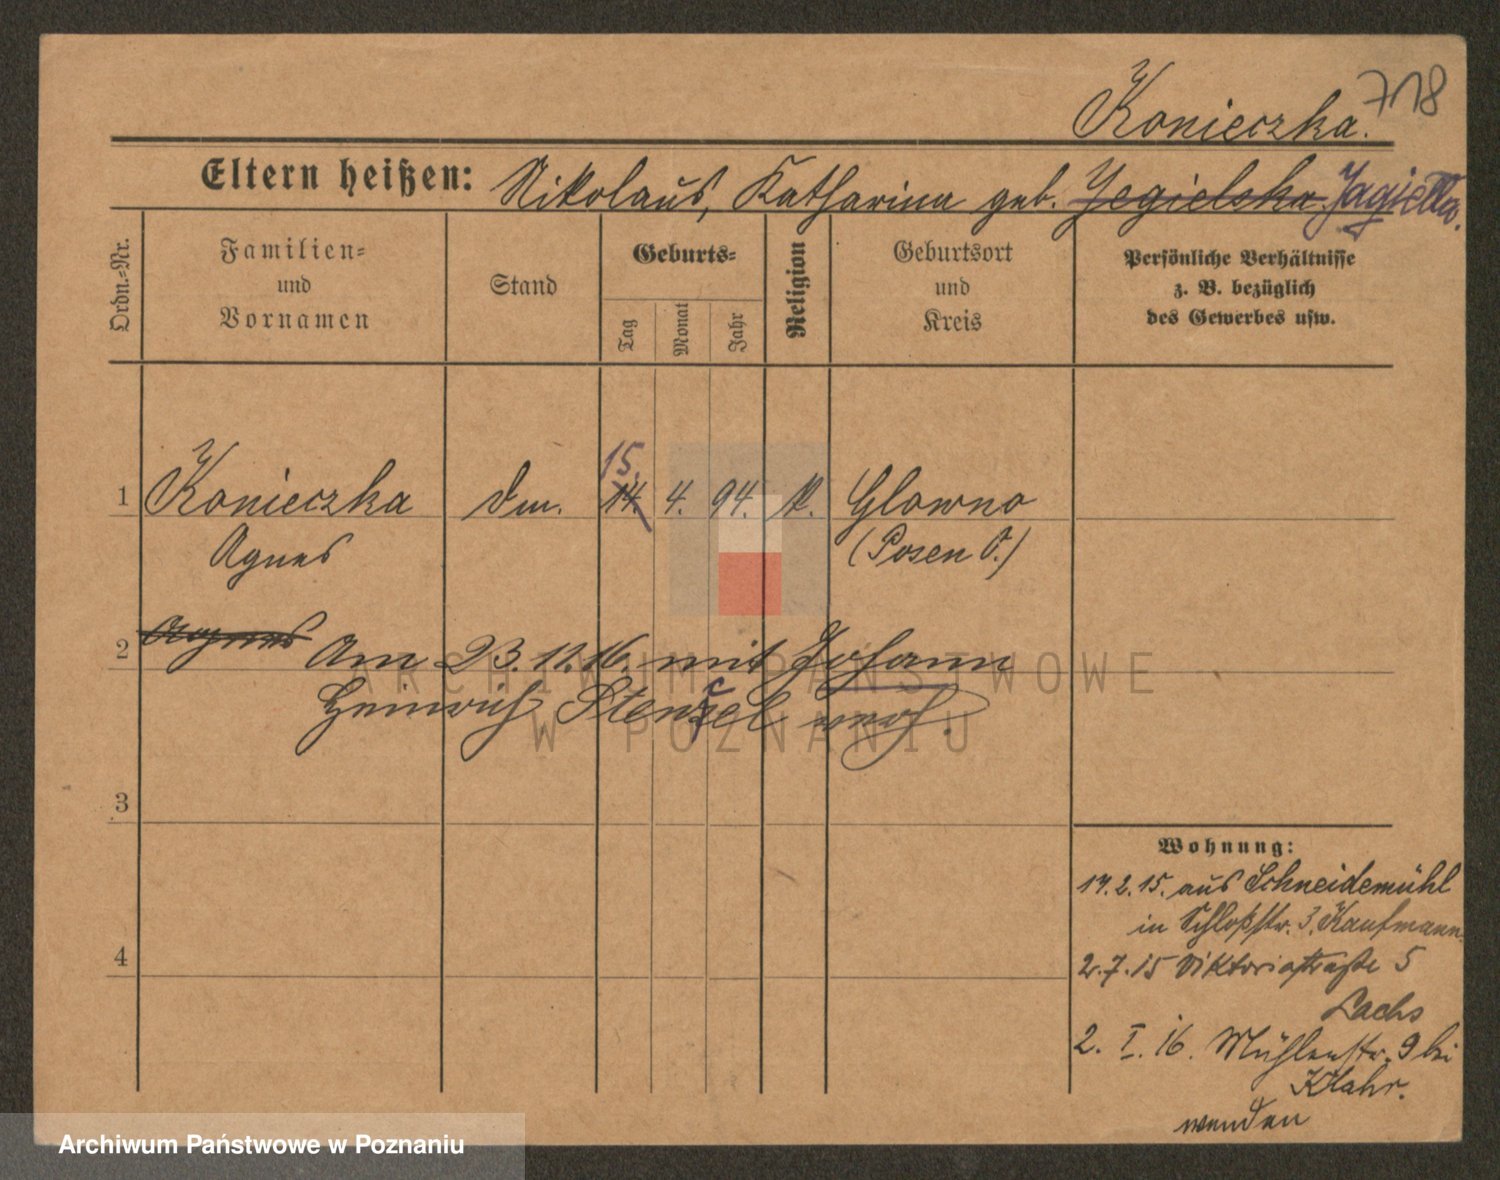 718
Konieczka.
Eltern heißen: Nikolaus, Katharina geb. Jegielska Jagiella.
Ordn.-Nr.
Familien-
und
Vornamen
Stand
Geburts-
Tag
Monat
Jahr
Religion
Geburtsort
und
Kreis
Persönliche Verhältnisse
z. B. bezüglich
des Gewerbes usw.
15.
1 Konieczka 14. 4. 94. k. Glowno
Agnes (Posen O.)
2 Agnes Am 23.12.16. mit Johann
Heinrich Stenzel verh.
c
3
4
Wohnung:
17.2.15. aus Schneidemühl
in Schloßstr. 3. Kaufmann
2.7.15 Viktoriastraße 5
Lachs
2. I. 16. Mühlenstr. 9 bei
Klahr.
wenden
ARCHIWUM PAŃSTWOWE
W POZNANIU
Archiwum Państwowe w Poznaniu